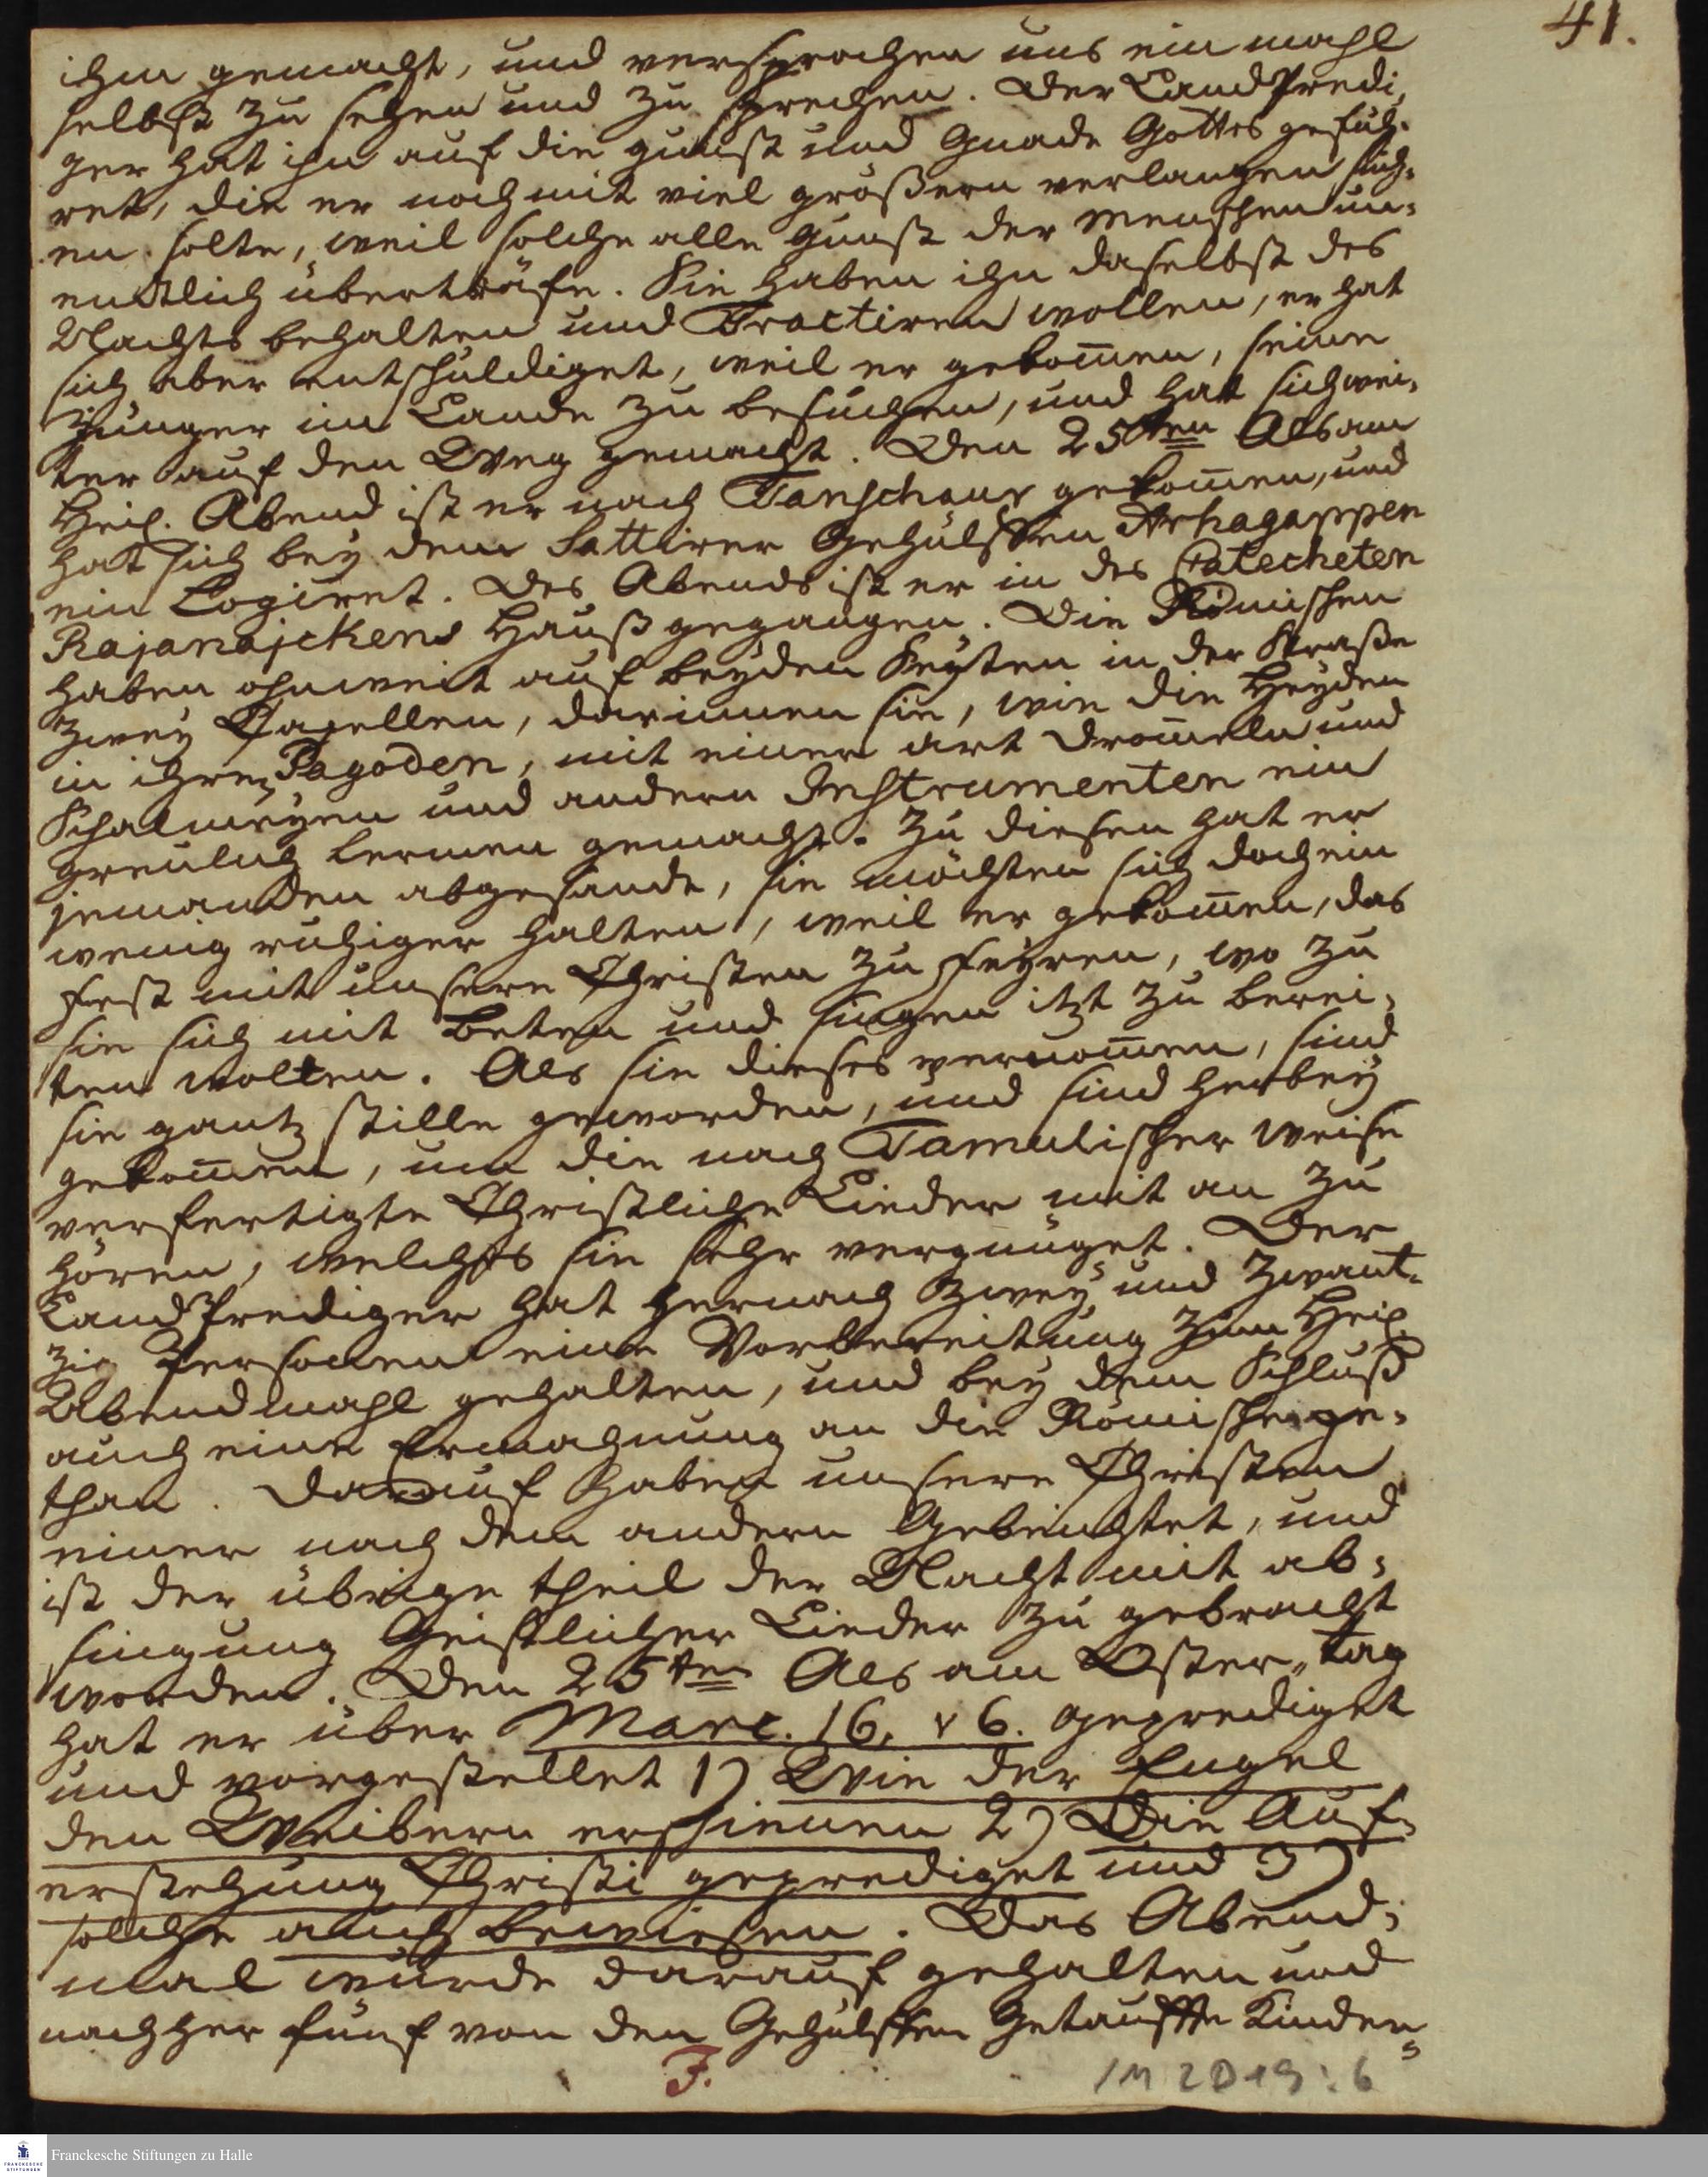 41.
ihm gemacht, und versprochen uns ein mahl
selbst zu sehen und zu sprechen. Der Land Predi¸
ger hat ihn auf die gunst und Gnade Gottes gefüh¸
ret, die er noch mit viel größern verlangen such¸
en solte, weil solche alle Gunst der Menschen un¸
endtlich überträfe. Sie haben ihn daselbst des
Nachts behalten und Tractiren wollen, er hat
sich aber entschuldiget, weil er gekom̄en, seine
Jünger im Lande zu besuchen, und hat sich wei¸
ter auf den Weg gemacht. Den 25ten Als am
Heil. Abend ist er nach Tanschaur gekom̄en, und
hat sich bey dem Sattirer Gehülffen Arhagappen
ein Logiret. Des Abends ist er in des Catecheten
Rajanajckens Hauß gegangen. Die Römischen
haben ohnweit auf beyden Seyten in der Straße
zwey Capellen, darinnen sie, wie die Heyden
in ihren Pagoden, mit einer art Drom̄eln und
Schalmeyen und andern Instrumenten ein
greulich Lermen gemacht. Zu diesen hat er
jemanden abgesandt, sie möchten sich doch ein
wenig ruhiger halten, weil er gekom̄en, das
Fest mit unsern Christen zu feyren, wo zu
sie sich mit Beten und singen itzt zu berei¸
ten wolten. Als sie dieses vernom̄en, sind
sie gantz stille geworden, und sind herbey
gekom̄en, um die nach Tamulischer weise
verfertigte Christliche Lieder mit an zu
hören, welches sie sehr vergnüget. Der
Land Prediger hat hernach zwey und zwant¸
zig Personen eine Vorbereitung zum Heil.
Abendmahl gehalten, und bey dem Schluß
auch eine Ermahnung an die Römische ge¸
than. Darauf haben unsere Christen
einer nach dem andern Gebeichtet, und
ist der übrige theil der Nacht mit ab¸
singung Geistlicher Lieder zu gebracht
worden. Den 25ten Als am Oster„tag
hat er über Marc. 16, v 6. geprediget
und vorgestellet 1) Wie der Engel
den Weibern erschienen 2) Die Auf¸
erstehung Christi geprediget und 3)
solche auch bewiesen. Das Abend¸
mal wurde darauf gehalten und
nachher fünf von den Gehülffen Getauffte Kinder
F.
1M 2D 19 : 6
Franckesche Stiftungen zu Halle
FRANCKESCHE STIFTUNGEN